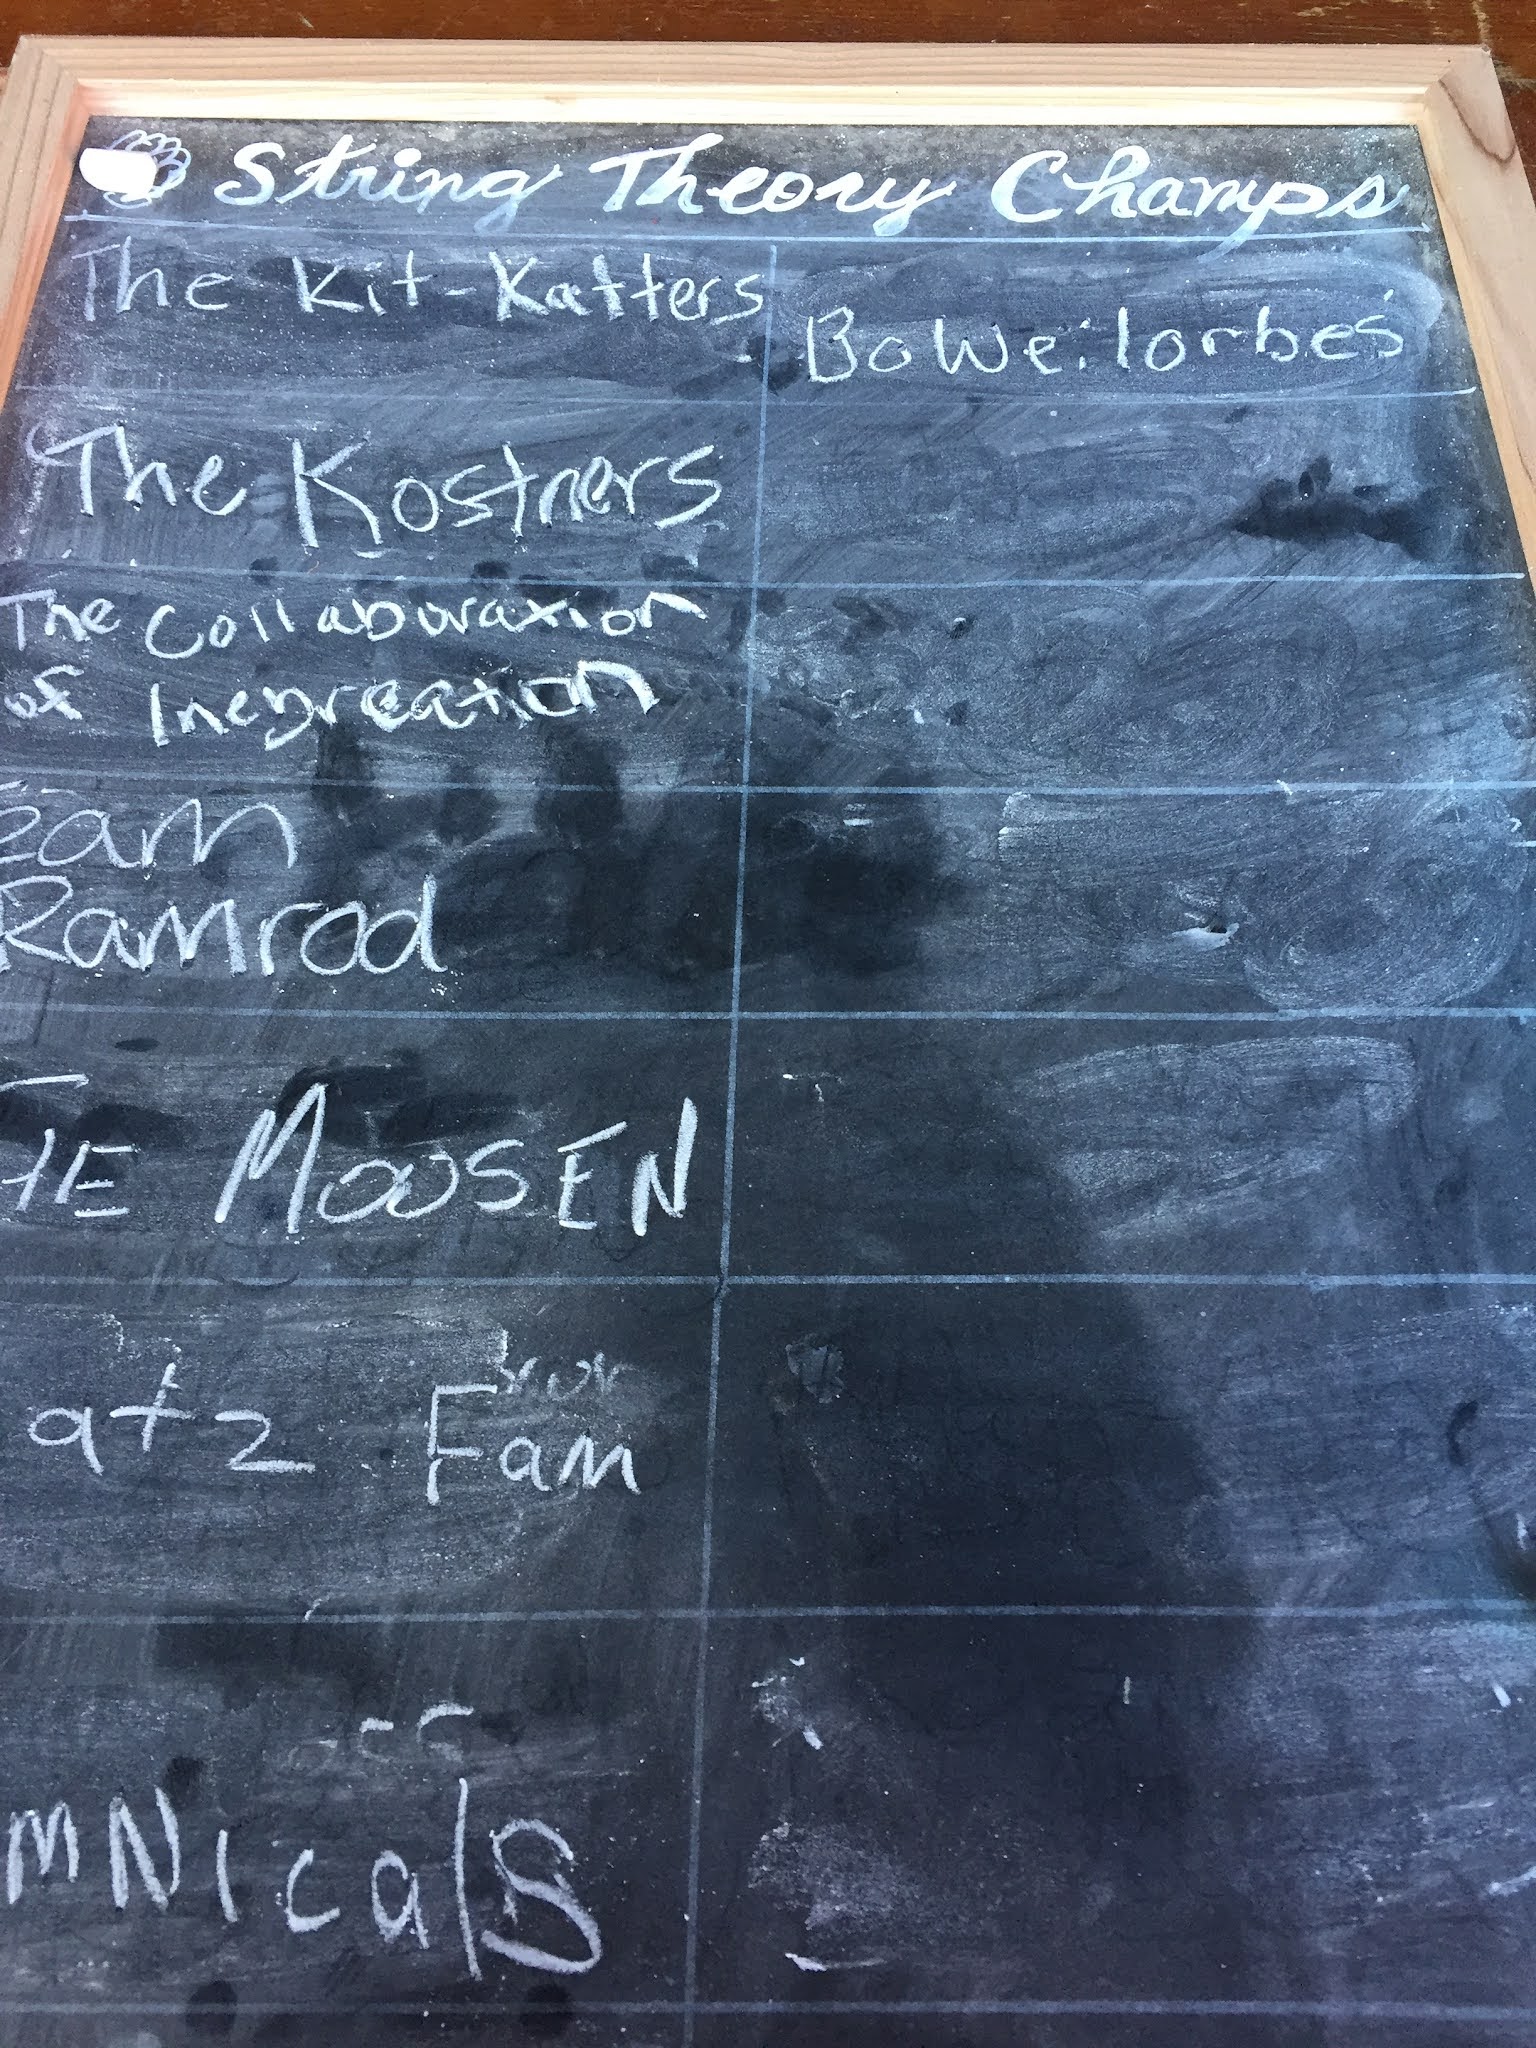 String Theory Champs
The Kit-Katters
BoWeilorbes
The Kostners
The Collaburaxion
of Inegreation
eam
Ramrod
MoosEN
atz Fam
mNicals